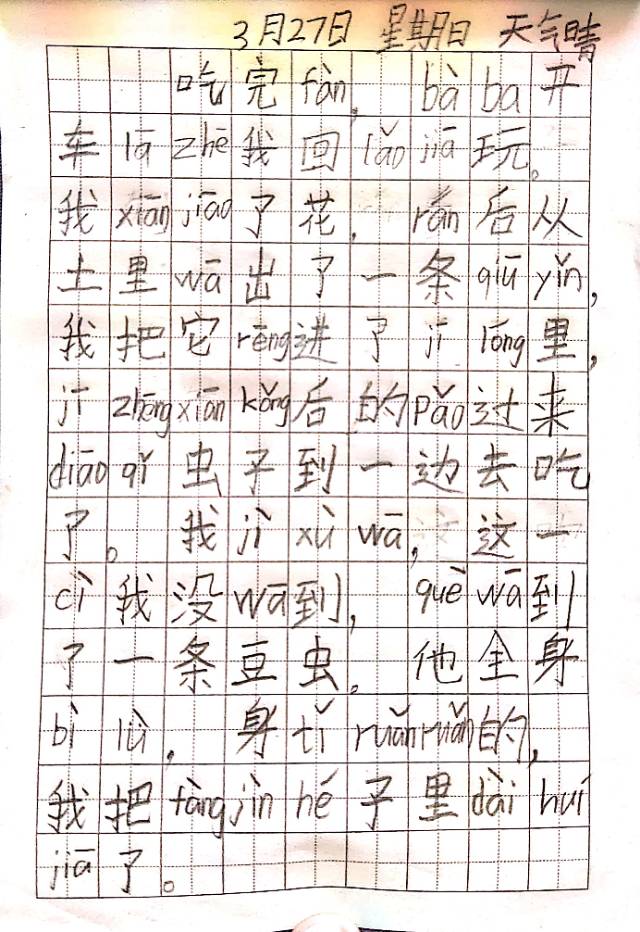 3月27日 星期日 天气晴
吃完fàn，bà ba开
车lā zhē我回lǎo jiā玩。
我xiān jiāo了花，rán后从
土里wā出了一条qiū yǐn，
我把它rēng进了jī lóng里，
jī zhēng xiān kǒng后的pǎo过来
diāo qǐ虫子到一边去吃
了。我jì xù wā，这一
cì我没wā到，què wā到
了一条豆虫。他全身
bì lǜ，身tǐ ruǎn ruǎn的，
我把fàng jìn hé子里dài huí
jiā了。